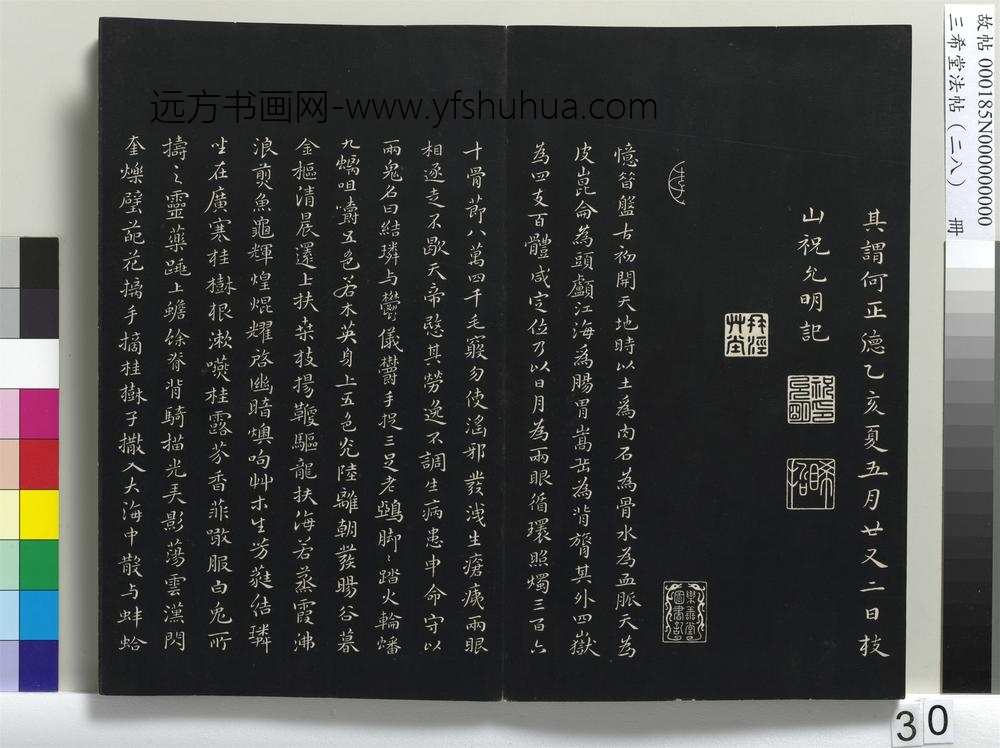 故帖 000185N000000000
三希堂法帖（二八） 冊
远方书画网-www.yfshuhua.com
其謂何正德乙亥夏五月廿又二日枝
山祝允明記
憶昔盤古初開天地時以土為肉石為骨水為血脈天為
皮崑侖為頭顱江海為腸胃嵩岳為背膂其外四嶽
為四支百體咸定位乃以日月為兩眼循環照燭三百六
十骨節八萬四千毛竅勿使淫邪發洩生瘡痍兩眼
相逐走不歇天帝愍其勞逸不調生病患申命守以
兩鬼名曰結璘与鬱儀鬱手捉三足老鵶脚〻踏火輪蟠
九螭咀嚼五色若木英身上五色光陸離朝發暘谷暮
金樞清晨還上扶桒枝揚鞭驅龍扶海若蒸霞沸
浪煎魚龜輝煌焜耀啓幽暗燠呴艸木生芳蕤結璘
坐在廣寒桂樹根漱嚥桂露芬香菲啖服白兔所
擣之靈藥踞上蟾蜍脊背騎描光美影蕩雲漢閃
奎爍璧葩花摛手摘桂樹子撒入大海中散与蚌蛤
30